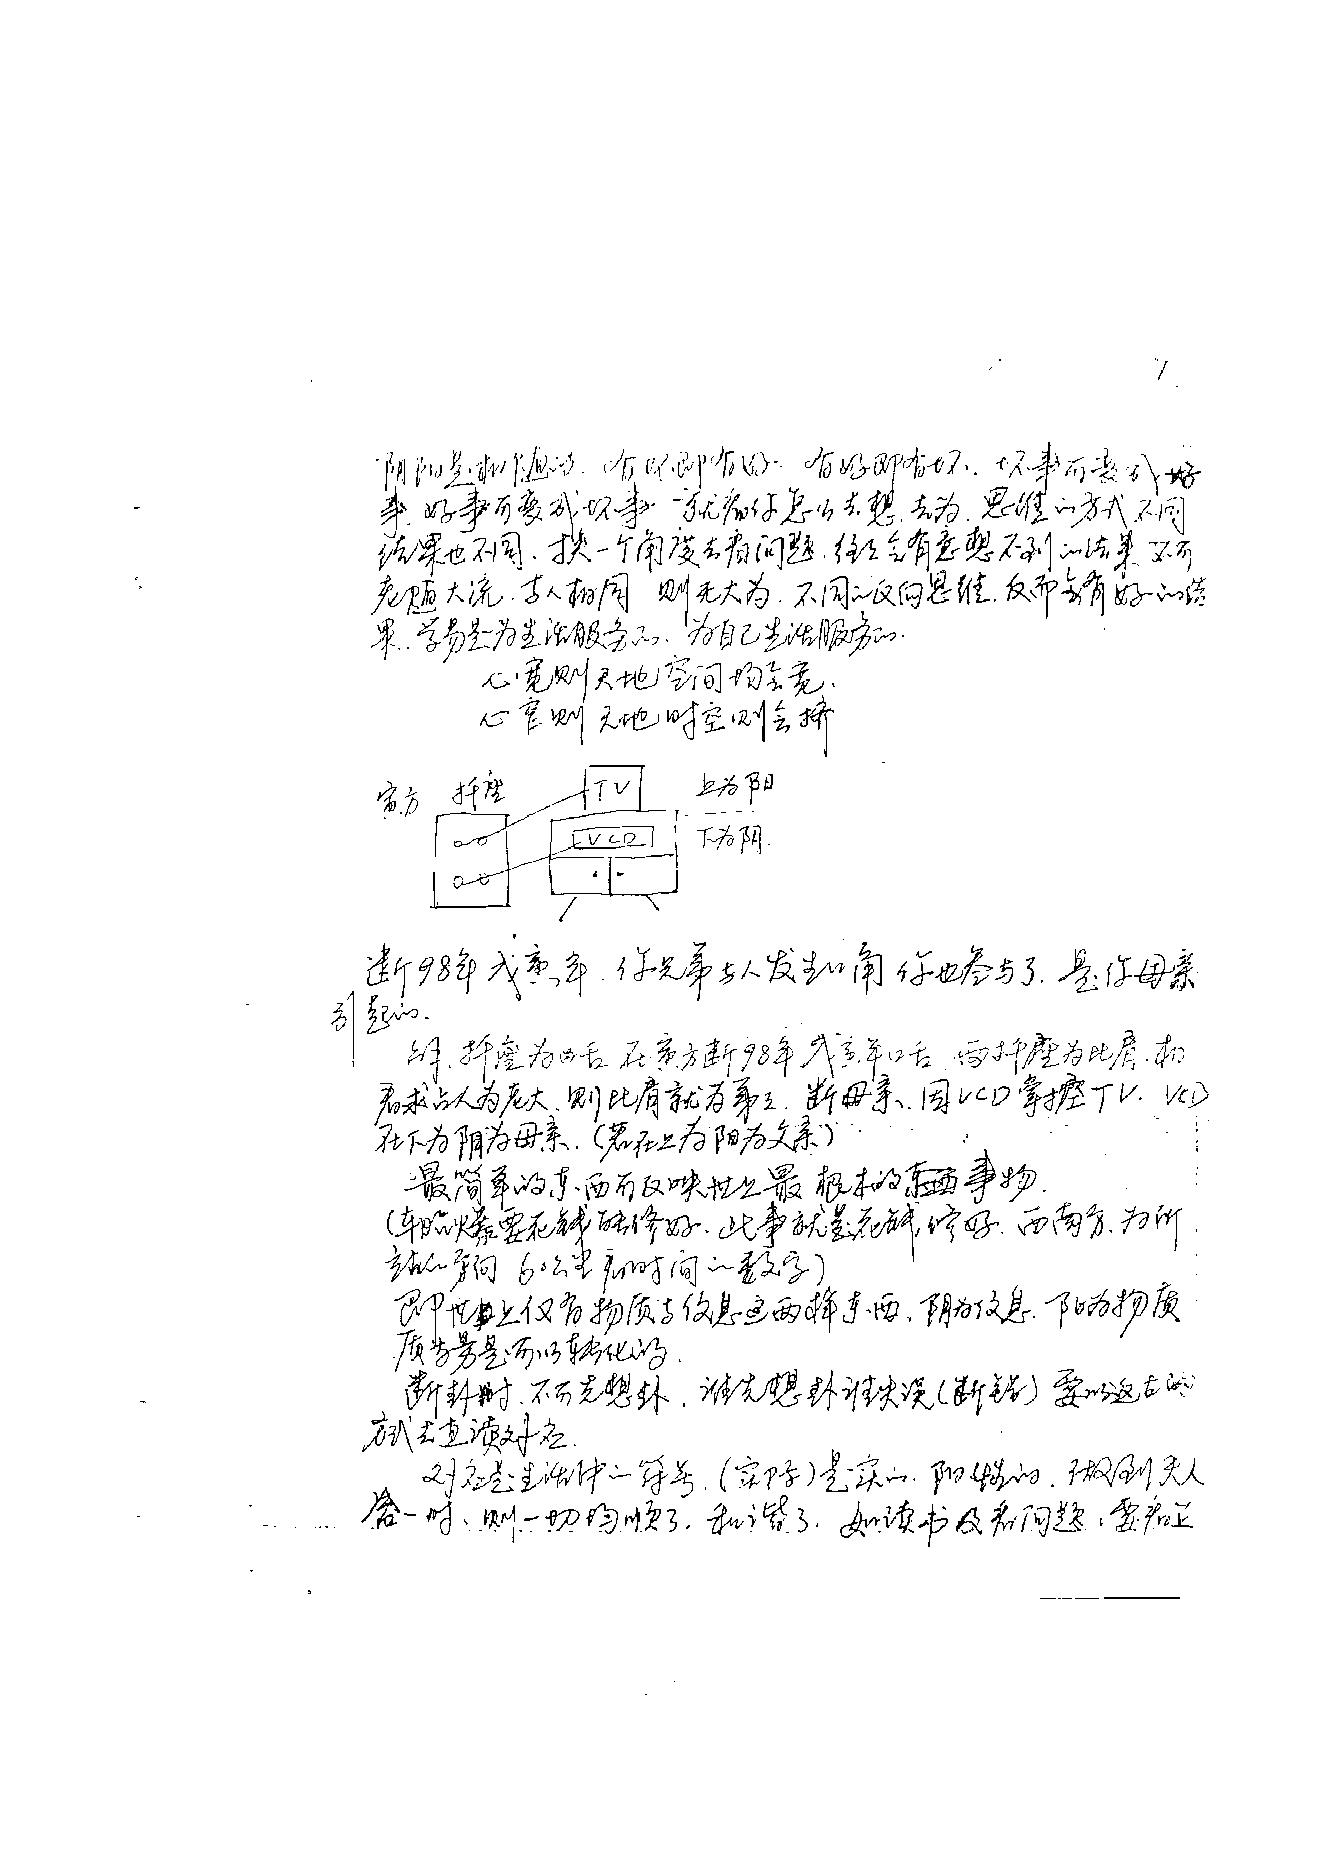 7
阴阳是相随的. 有坏即有好. 有好即有坏. 坏事可变成好
事. 好事可变成坏事. 就看你怎么去想. 去为. 思维的方式不同
结果也不同. 换一个角度去看问题. 往往会有意想不到的结果. 不可
老随大流. 与人相同 则无大为. 不同的反向思维. 反而会有好的结
果. 学易是为生活服务的. 为自己生活服务的.
心宽则天地空间均会宽.
心窄则天地时空则会挤
寅方 插座 TV 上为阳
VCD 下为阴.
断98年戊寅年. 你兄弟与人发生口角 你也参与了. 是你母亲
引起的.
插座为口舌 在寅方断98年戊寅年口舌 两插座为比肩.
若求占人为老大. 则比肩就为弟. 断母亲. 因VCD掌控TV. VCD
在下为阴为母亲. (若在上为阳为父亲)
最简单的东西可反映世上最根本的东西事物.
(车胎爆要花钱能修好. 此事就是花钱修好. 西南方. 为所
方向 60公里 时间的数字)
即世上仅有物质与信息这两样东西. 阴为信息. 阳为物质
是可以转化的.
断卦时. 不可先想卦. 谁先想卦谁失误(断错) 要以
方式去直读对应.
对应是生活中的符号. (实际) 是实的. 阳性的. 做到天人
合一时. 则一切均顺了. 和谐了. 如读书及看问题. 要看正